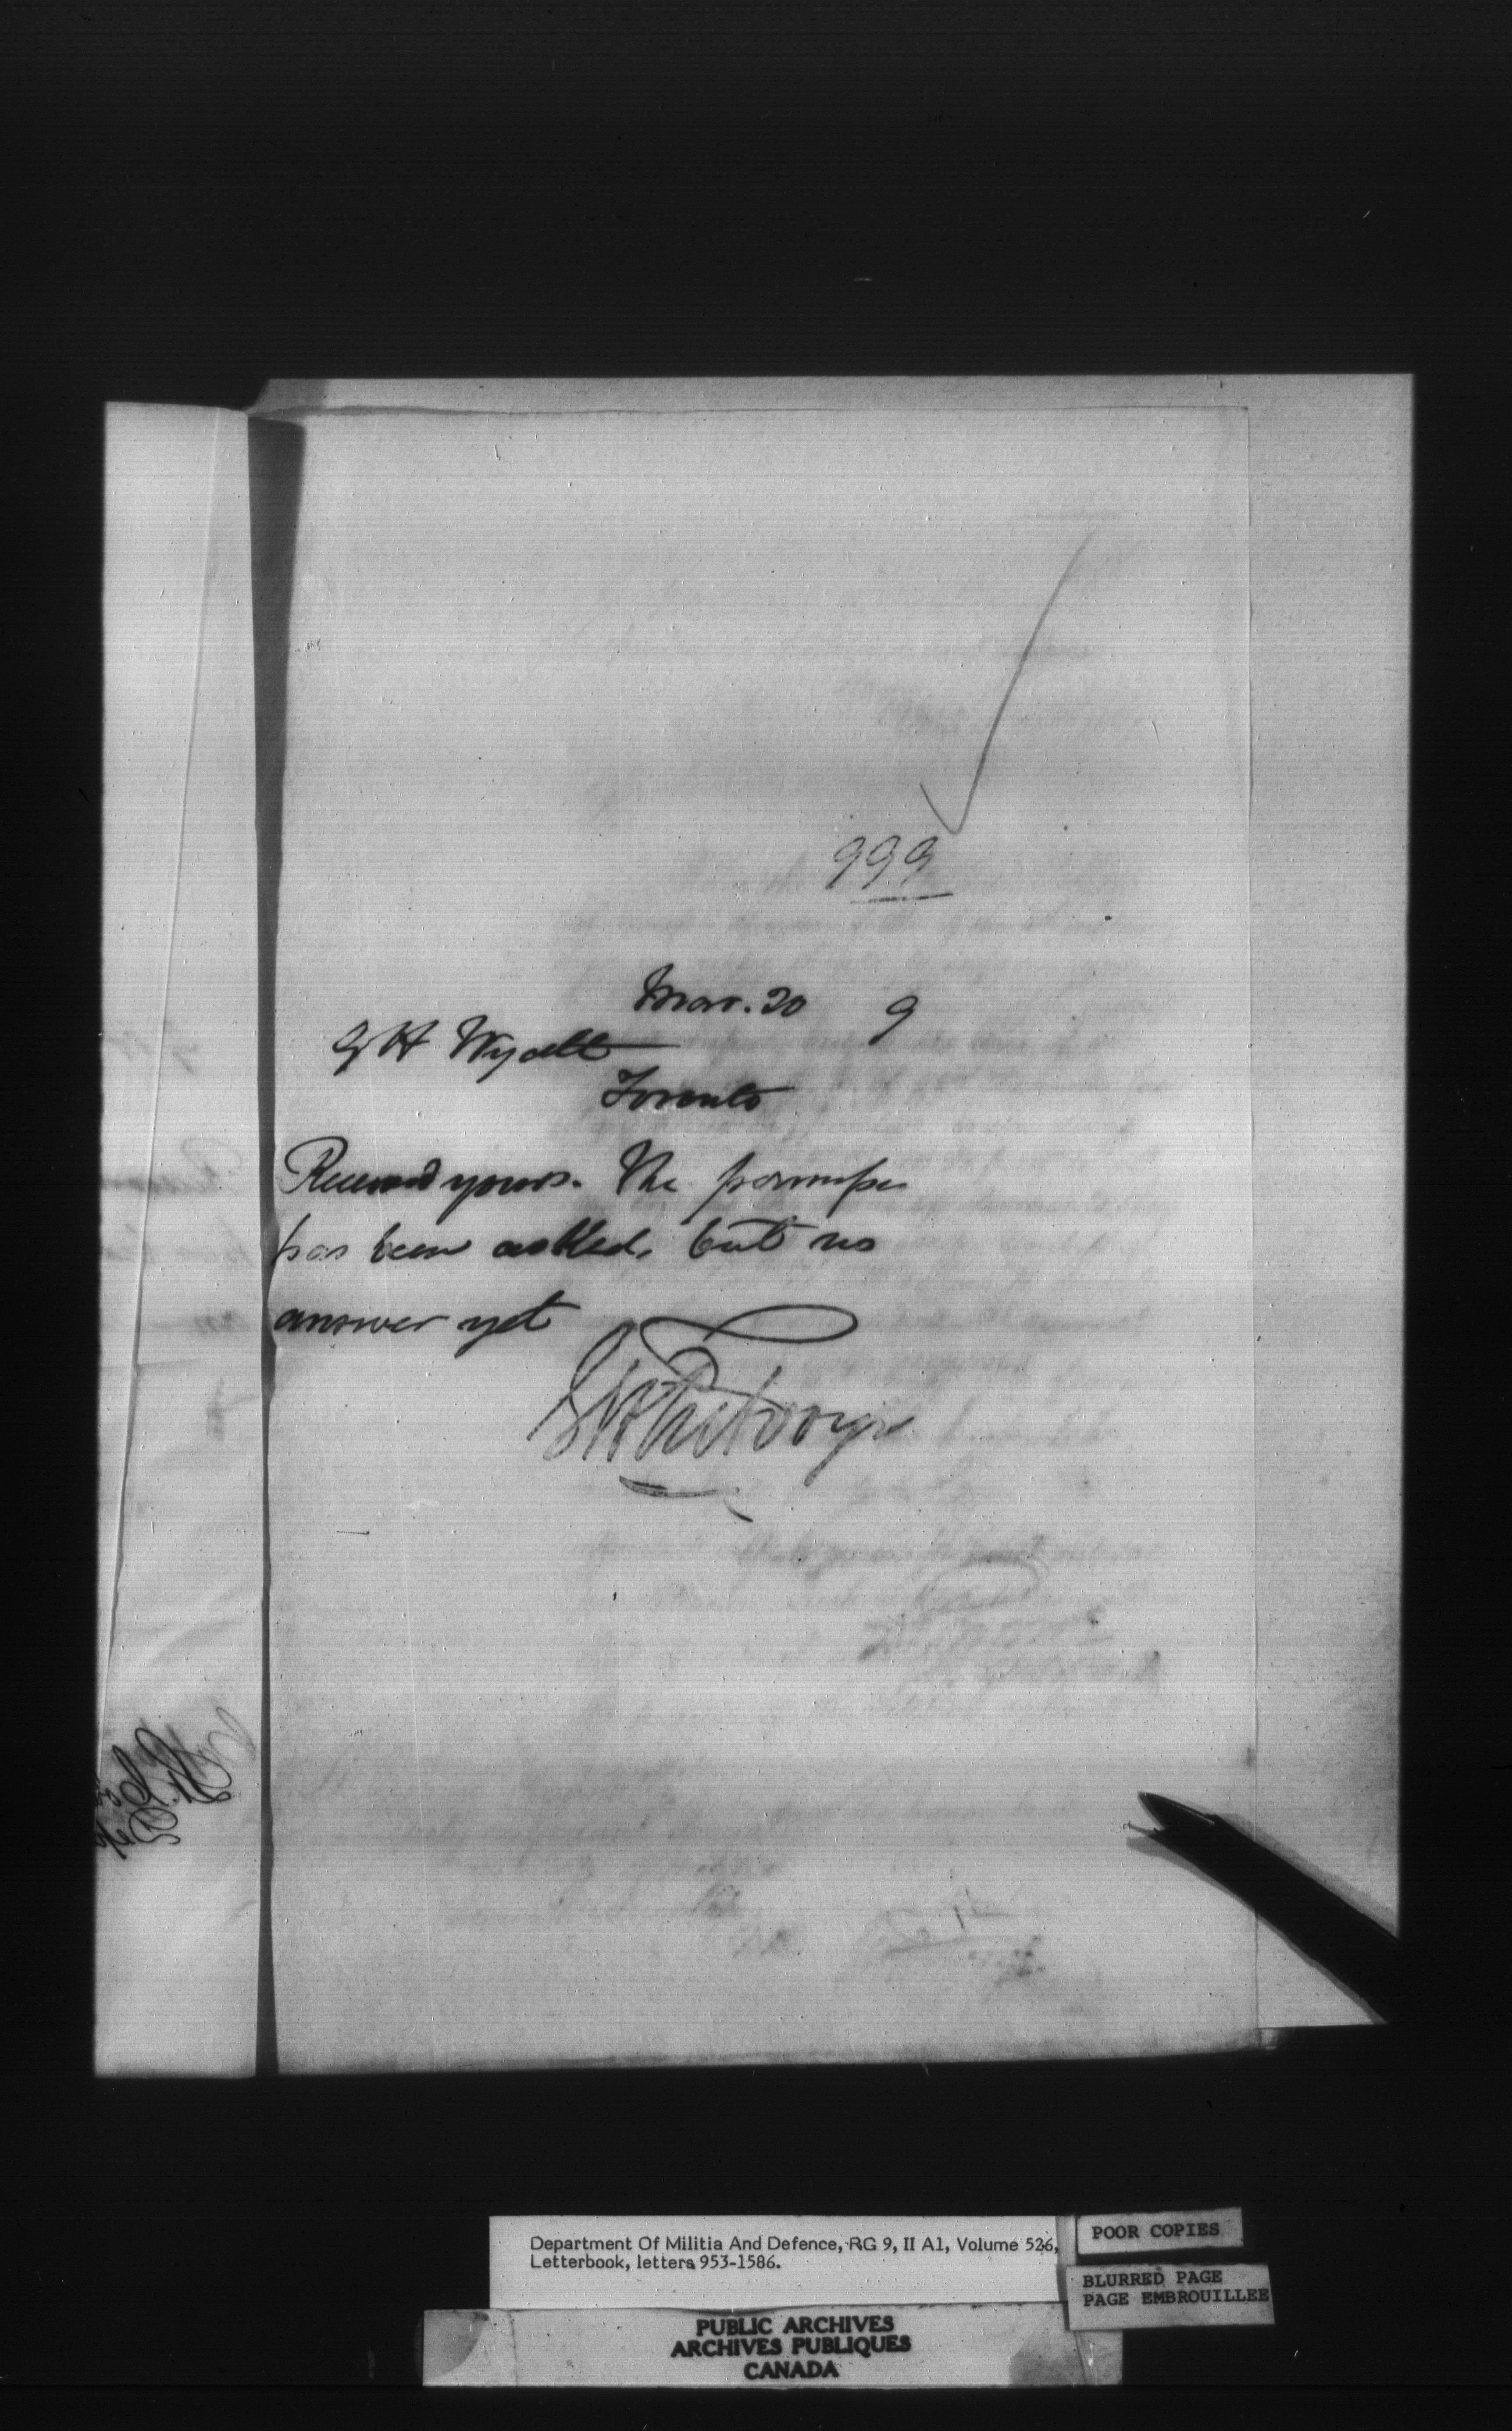 999
Mar. 20 9
G H Wyatt
Toronto
Received yours. The
has been asked, but no
answer yet
Department Of Militia And Defence, RG 9, II A1, Volume 526,
Letterbook, letters 953-1586.
POOR COPIES
BLURRED PAGE
PAGE EMBROUILLEE
PUBLIC ARCHIVES
ARCHIVES PUBLIQUES
CANADA